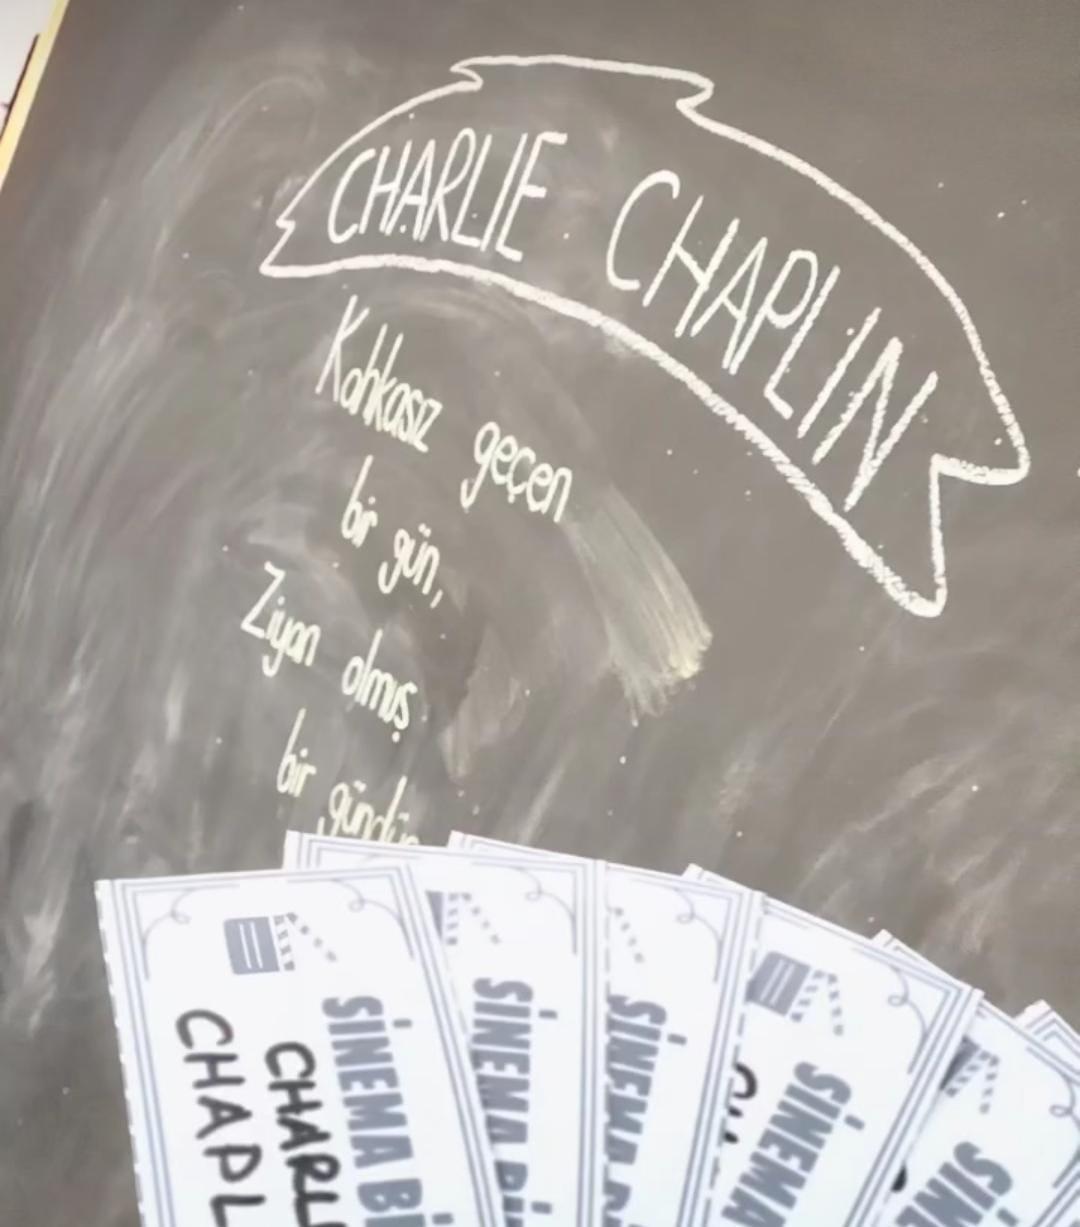 CHARLIE CHAPLIN
Kahkasız geçen
bir gün,
Ziyan olmuş
bir gündür
SİNEMA Bİ
CHARLI
CHAPL
SİNEMA Bİ
SİNEMA
SİNEMA
SİN